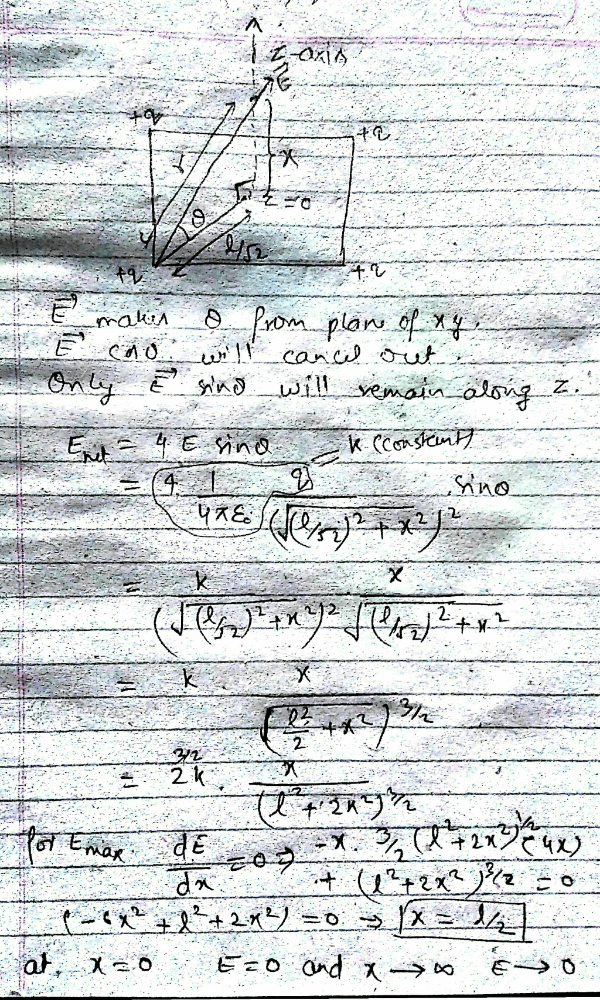 z-axis
E⃗
+q
+q
r
x
θ
z=0
l/√2
+q
+q
E⃗ makes θ from plane of xy.
E⃗ cosθ will cancel out.
Only E⃗ sinθ will remain along z.
E_net = 4 E sinθ
= k (constant)
= 4 · 1/(4πε₀) · q/(√((l/√2)² + x²))² · sinθ
= k/(√((l/√2)² + x²))² · x/√((l/√2)² + x²)
= k · x/(l²/2 + x²)^(3/2)
= 2^(3/2) k · x/(l² + 2x²)^(3/2)
for E_max dE/dx = 0 ⇒ -x · 3/2 (l² + 2x²)^(1/2) (4x)
+ (l² + 2x²)^(3/2) = 0
(-6x² + l² + 2x²) = 0 → x = l/2
at x = 0 E = 0 and x → ∞ E → 0